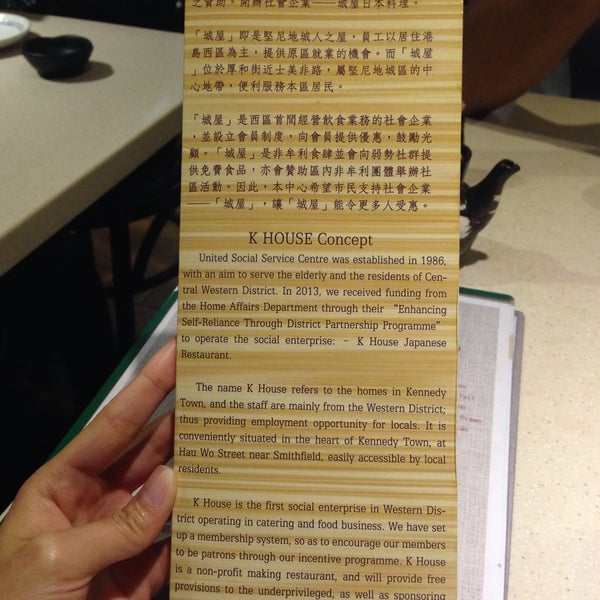 之資助。開辦社會企業——城屋日本料理。
「城屋」即是堅尼地城人之屋，員工以居住港
島西區為主，提供原區就業的機會。而「城屋
」位於厚和街近士美非路，屬堅尼地城區的中
心地帶，便利服務本區居民。
「城屋」是西區首間經營飲食業務的社會企業
，並設立會員制度，向會員提供優惠，鼓勵光
顧。「城屋」是非牟利食肆並會向弱勢社群提
供免費食品，亦會贊助區內非牟利團體舉辦社
區活動。因此，本中心希望市民支持社會企業
——「城屋」，讓「城屋」能令更多人受惠。
K HOUSE Concept
United Social Service Centre was established in 1986,
with an aim to serve the elderly and the residents of Cen-
tral Western District. In 2013, we received funding from
the Home Affairs Department through their "Enhancing
Self-Reliance Through District Partnership Programme"
to operate the social enterprise: - K House Japanese
Restaurant.
The name K House refers to the homes in Kennedy
Town, and the staff are mainly from the Western District;
thus providing employment opportunity for locals. It is
conveniently situated in the heart of Kennedy Town, at
Hau Wo Street near Smithfield, easily accessible by local
residents.
K House is the first social enterprise in Western Dis-
trict operating in catering and food business. We have set
up a membership system, so as to encourage our members
to be patrons through our incentive programme. K House
is a non-profit making restaurant, and will provide free
provisions to the underprivileged, as well as sponsoring